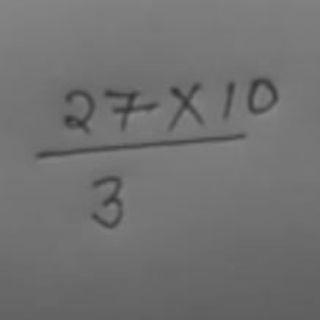 27×10
3